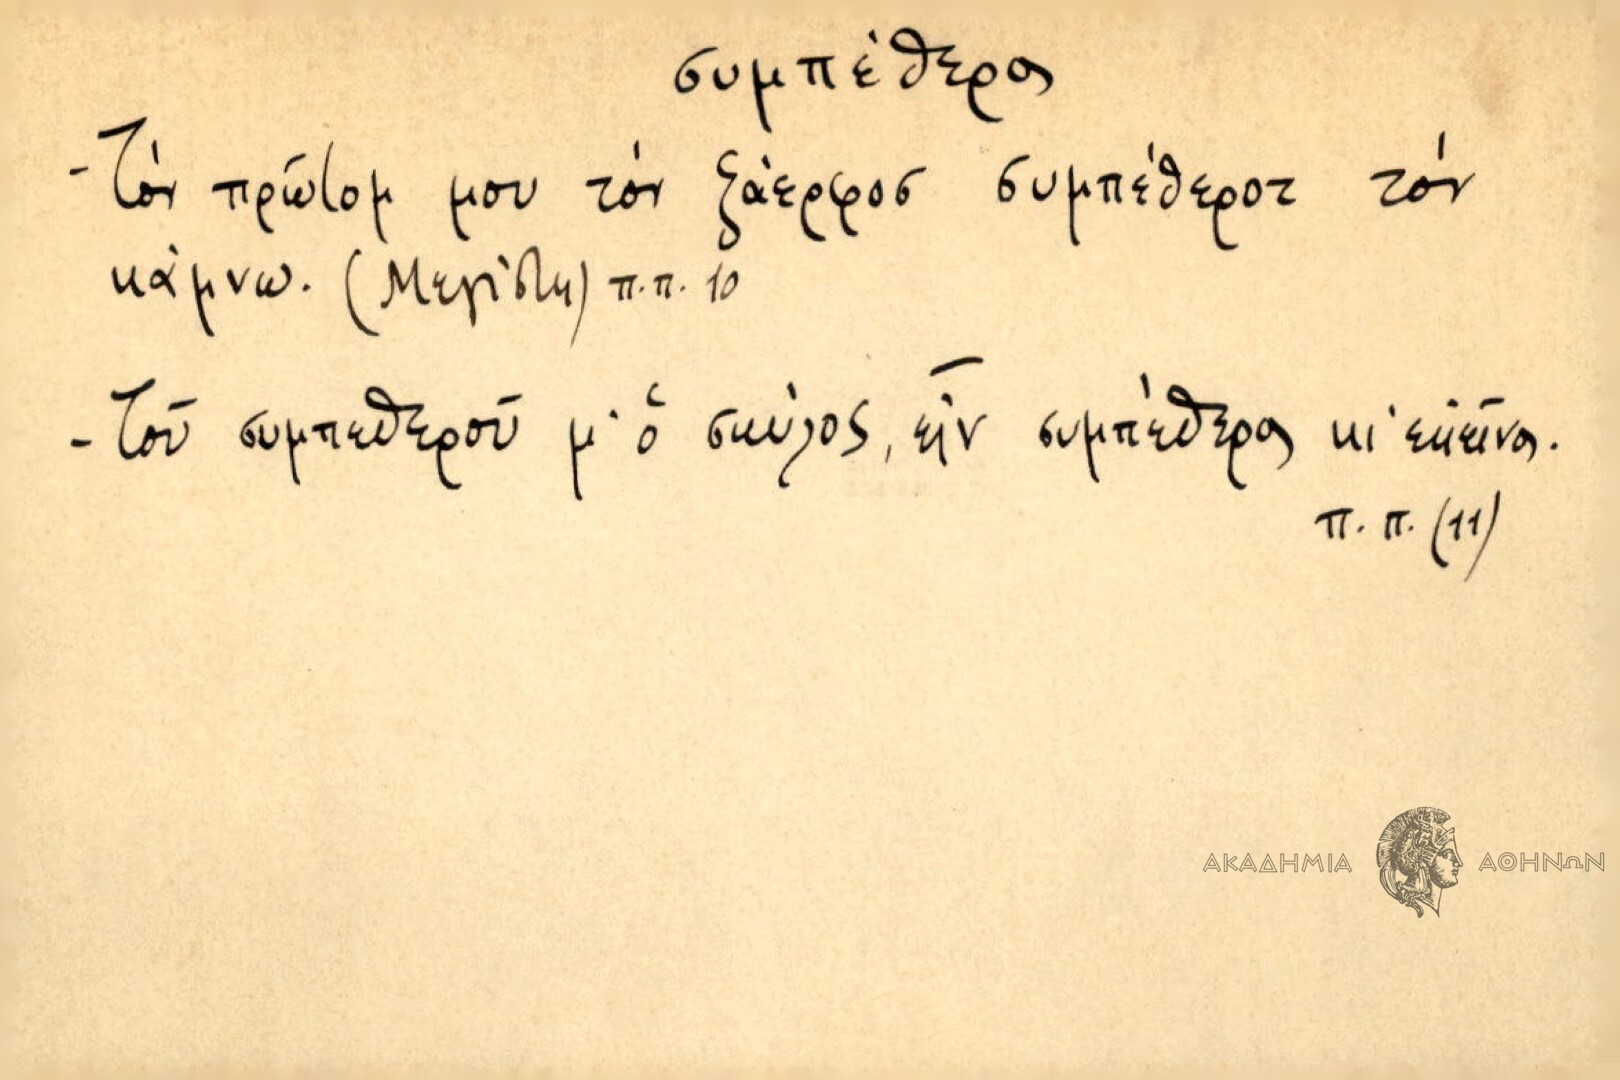 συμπέθερος
- Τόν πρῶτομ μου τόν ξάερφοσ συμπέθεροτ τόν
κάμνω. (Μεγίστη) π.π. 10
- Τοῦ συμπεθεροῦ μ' ὁ σκύλος, εἶν συμπέθερος κι' ἐκεῖνος.
π. π. (11)
ΑΚΑΔΗΜΙΑ ΑΘΗΝΩΝ